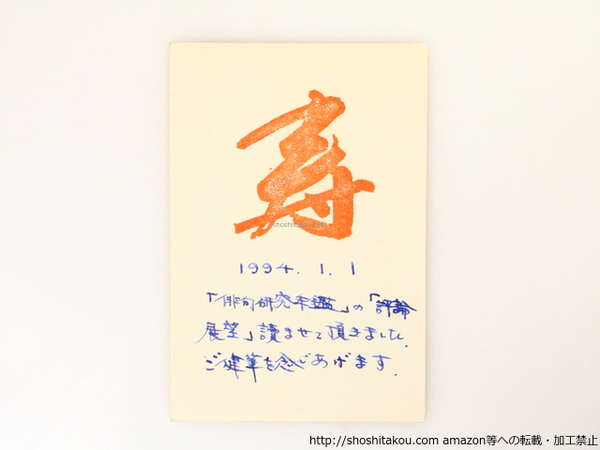 寿
shoshitakou.com
1994. 1. 1
「俳句研究年鑑」の「評論
展望」読ませて頂きました.
ご健筆を念じあげます.
http://shoshitakou.com amazon等への転載・加工禁止